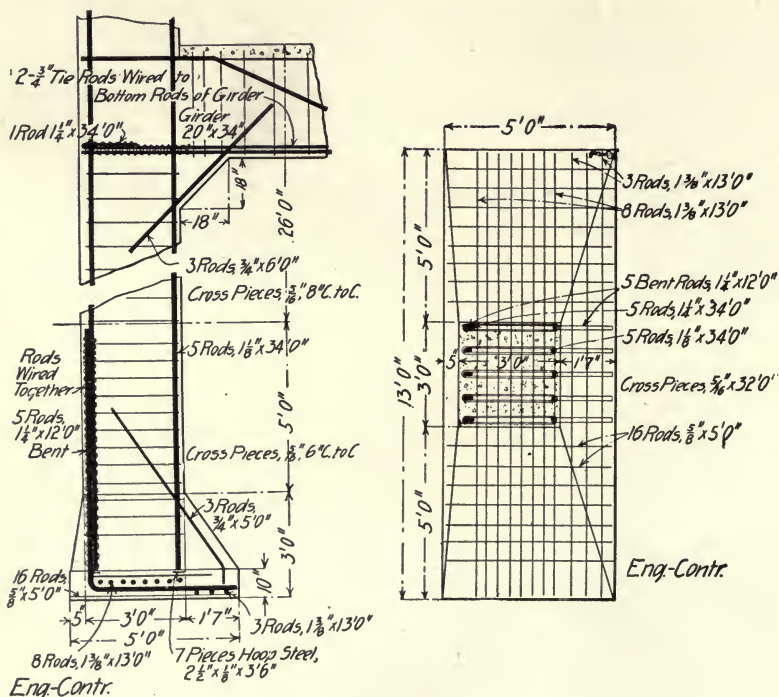 2-¾" Tie Rods Wired to
Bottom Rods of Girder
Girder
20"x34"
1 Rod 1¼"x34'0"
18"
18"
26'0"
3 Rods, ¾"x6'0"
Cross Pieces, 5/16", 8"C. to C.
Rods
Wired
Together
5 Rods, 1⅛"x34'0"
5 Rods,
1¼"x12'0"
Bent
5'0"
Cross Pieces, 5/16", 6"C. to C
3 Rods,
¾"x5'0"
3'0"
10"
16 Rods,
⅝"x5'0"
5"
3'0"
1'7"
5'0"
3 Rods, 1⅜"x13'0"
8 Rods, 1⅜"x13'0"
7 Pieces Hoop Steel,
2½"x⅛"x3'6"
Eng.-Contr.
5'0"
3 Rods, 1⅜"x13'0"
8 Rods, 1⅜"x13'0"
5'0"
5 Bent Rods, 1¼"x12'0"
5 Rods, 1¼"x34'0"
5 Rods, 1⅛"x34'0"
13'0"
3'0"
5"
3'0"
1'7"
Cross Pieces, 5/16"x32'0"
16 Rods, ⅝"x5'0"
5'0"
Eng.-Contr.